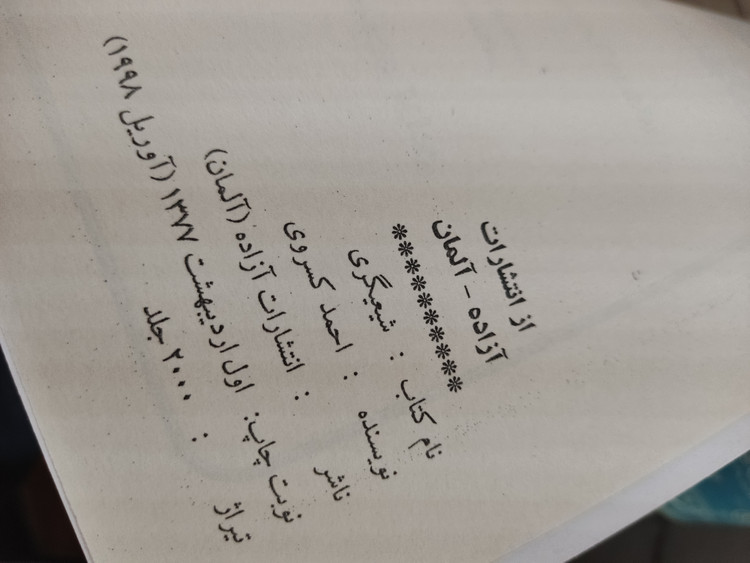 از انتشارات
آزاده - آلمان
**********
نام کتاب : شیعیگری
نویسنده : احمد کسروی
ناشر : انتشارات آزاده (آلمان)
نوبت چاپ: اول اردیبهشت ۱۳۷۷ (آوریل ۱۹۹۸)
تیراژ : ۲۰۰۰ جلد